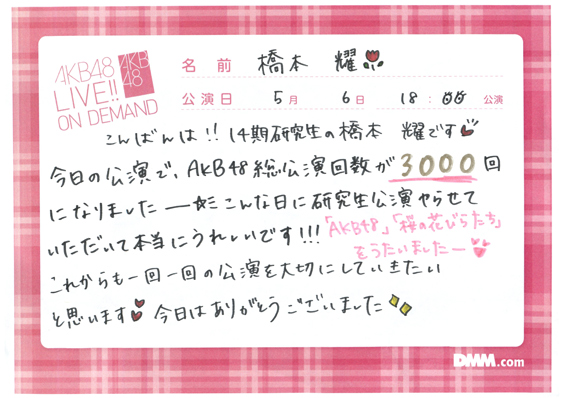 AKB48
LIVE!!
ON DEMAND
AKB
48
名前 橋本 耀
公演日 5月 6日 18:00 公演
こんばんは!! 14期研究生の橋本 耀です
今日の公演で、AKB48総公演回数が3000回
になりましたー☆ミ こんな日に研究生公演やらせて
いただいて本当にうれしいです!!!
「AKB48」「桜の花びらたち」
をうたいましたー
これからも一回一回の公演を大切にしていきたい
と思います 今日はありがとうございました
DMM.com